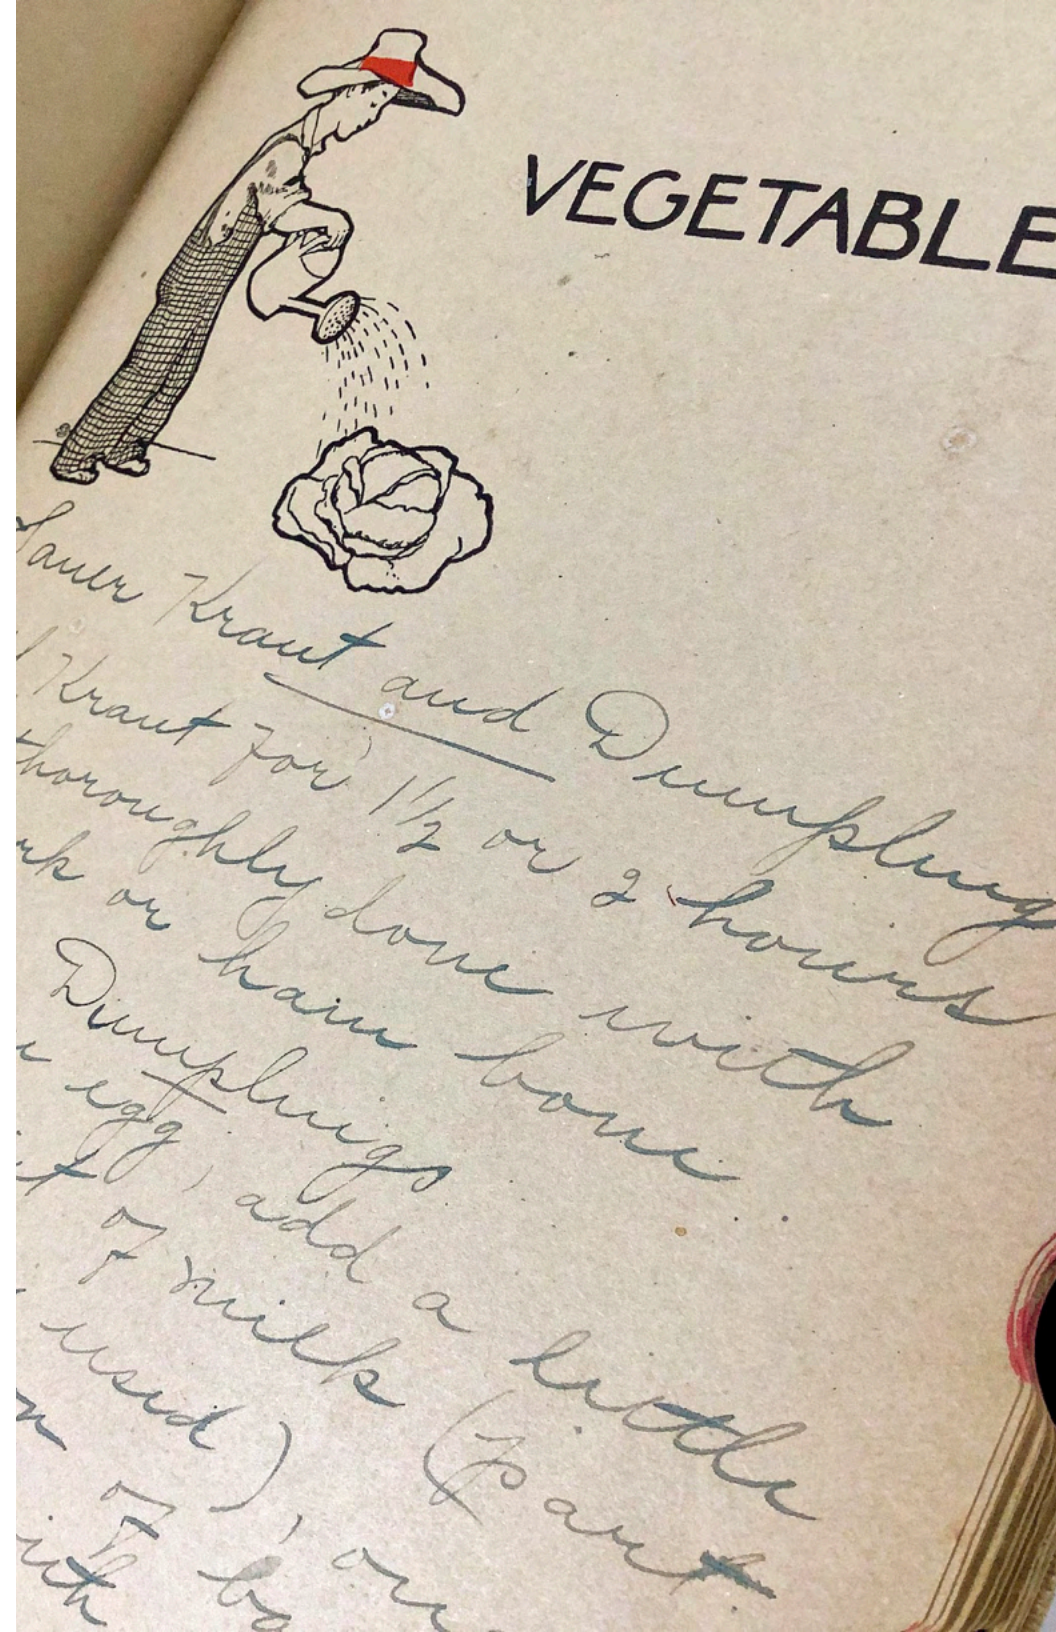 VEGETABLE
Sauer Kraut and Dumpling
Kraut for 1 1/2 or 2 hours
thoroughly done with
or ham bone
Dumplings
egg, add a little
of milk (part
used), one
of ba